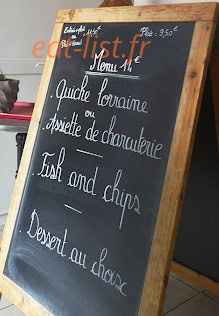 Entrée + plat
ou
Plat + dessert : 11,50€
Plat : 9,50€
eat-list.fr
Menu 14€
. Quiche lorraine
ou
. Assiette de charcuterie
. Fish and chips
. Dessert au choix